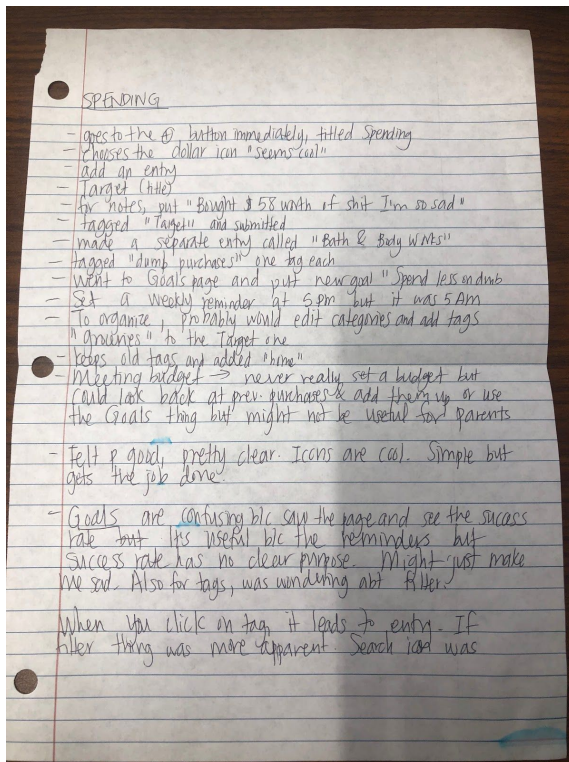 SPENDING
- goes to the ⊕ button immediately, titled Spending
- chooses the dollar icon "seems cool"
- add an entry
- Target (title)
- for notes, put "Bought $58 worth of shit I'm so sad"
- tagged "Target" and submitted
- made a separate entry called "Bath & Body Wrks"
- tagged "dumb purchases" one tag each
- Went to Goals page and put new goal "Spend less on dmb
- Set a weekly reminder at 5 pm but it was 5 AM
- To organize, probably would edit categories and add tags
"groceries" to the Target one
- keeps old tags and added "home"
- Meeting budget → never really set a budget but
could look back at prev. purchases & add them up or use
the Goals thing but might not be useful for parents
- Felt p good, pretty clear. Icons are cool. Simple but
gets the job done.
- Goals are confusing b/c saw the page and see the success
rate but its useful b/c the reminders but
success rate has no clear purpose. Might just make
me sad. Also for tags, was wondering abt filter.
When you click on tag, it leads to entry. If
filter thing was more apparent. Search icon was